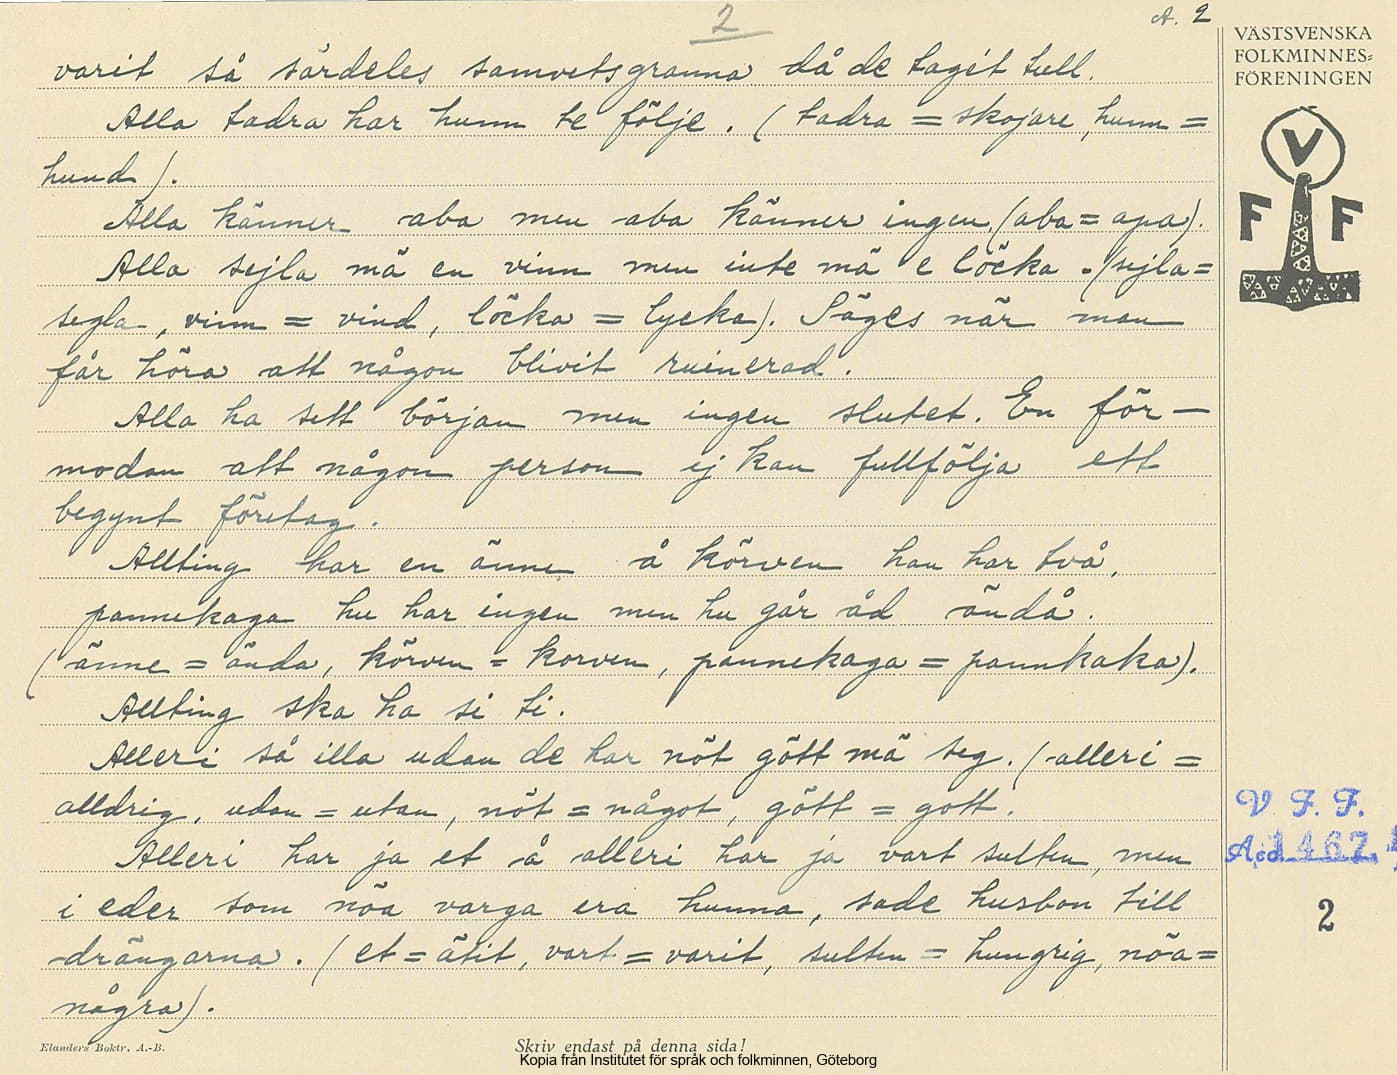 2
A. 2
VÄSTSVENSKA
FOLKMINNES=
FÖRENINGEN
V
F F
varit så särdeles samvetsgranna då de tagit tull.
Alla tadra har hunn te följe. (tadra = skojare, hunn =
hund).
Alla känner aba men aba känner ingen. (aba = apa).
Alla sejla mä en vinn men inte mä e löcka. (sejla =
segla, vinn = vind, löcka = lycka). Säges när man
får höra att någon blivit ruinerad.
Alla ha sett början men ingen slutet. En för-
modan att någon person ej kan fullfölja ett
begynt företag.
Allting har en änne å körven han har två,
pannekaga hu har ingen men hu går åd ändå.
(änne = ända, körven = korven, pannekaga = pannkaka).
Allting ska ha si ti.
Alleri så illa udan de har nöt gött mä seg. (alleri =
alldrig, udan = utan, nöt = något, gött = gott.
Alleri har ja et å alleri har ja vart sulten, men
i eder som nöa varga era hunna, sade husbon till
drängarna. (et = ätit, vart = varit, sulten = hungrig, nöa =
några).
V. F. F.
Acc. 1467.
2
Elanders Boktr. A.-B.
Skriv endast på denna sida!
Kopia från Institutet för språk och folkminnen, Göteborg